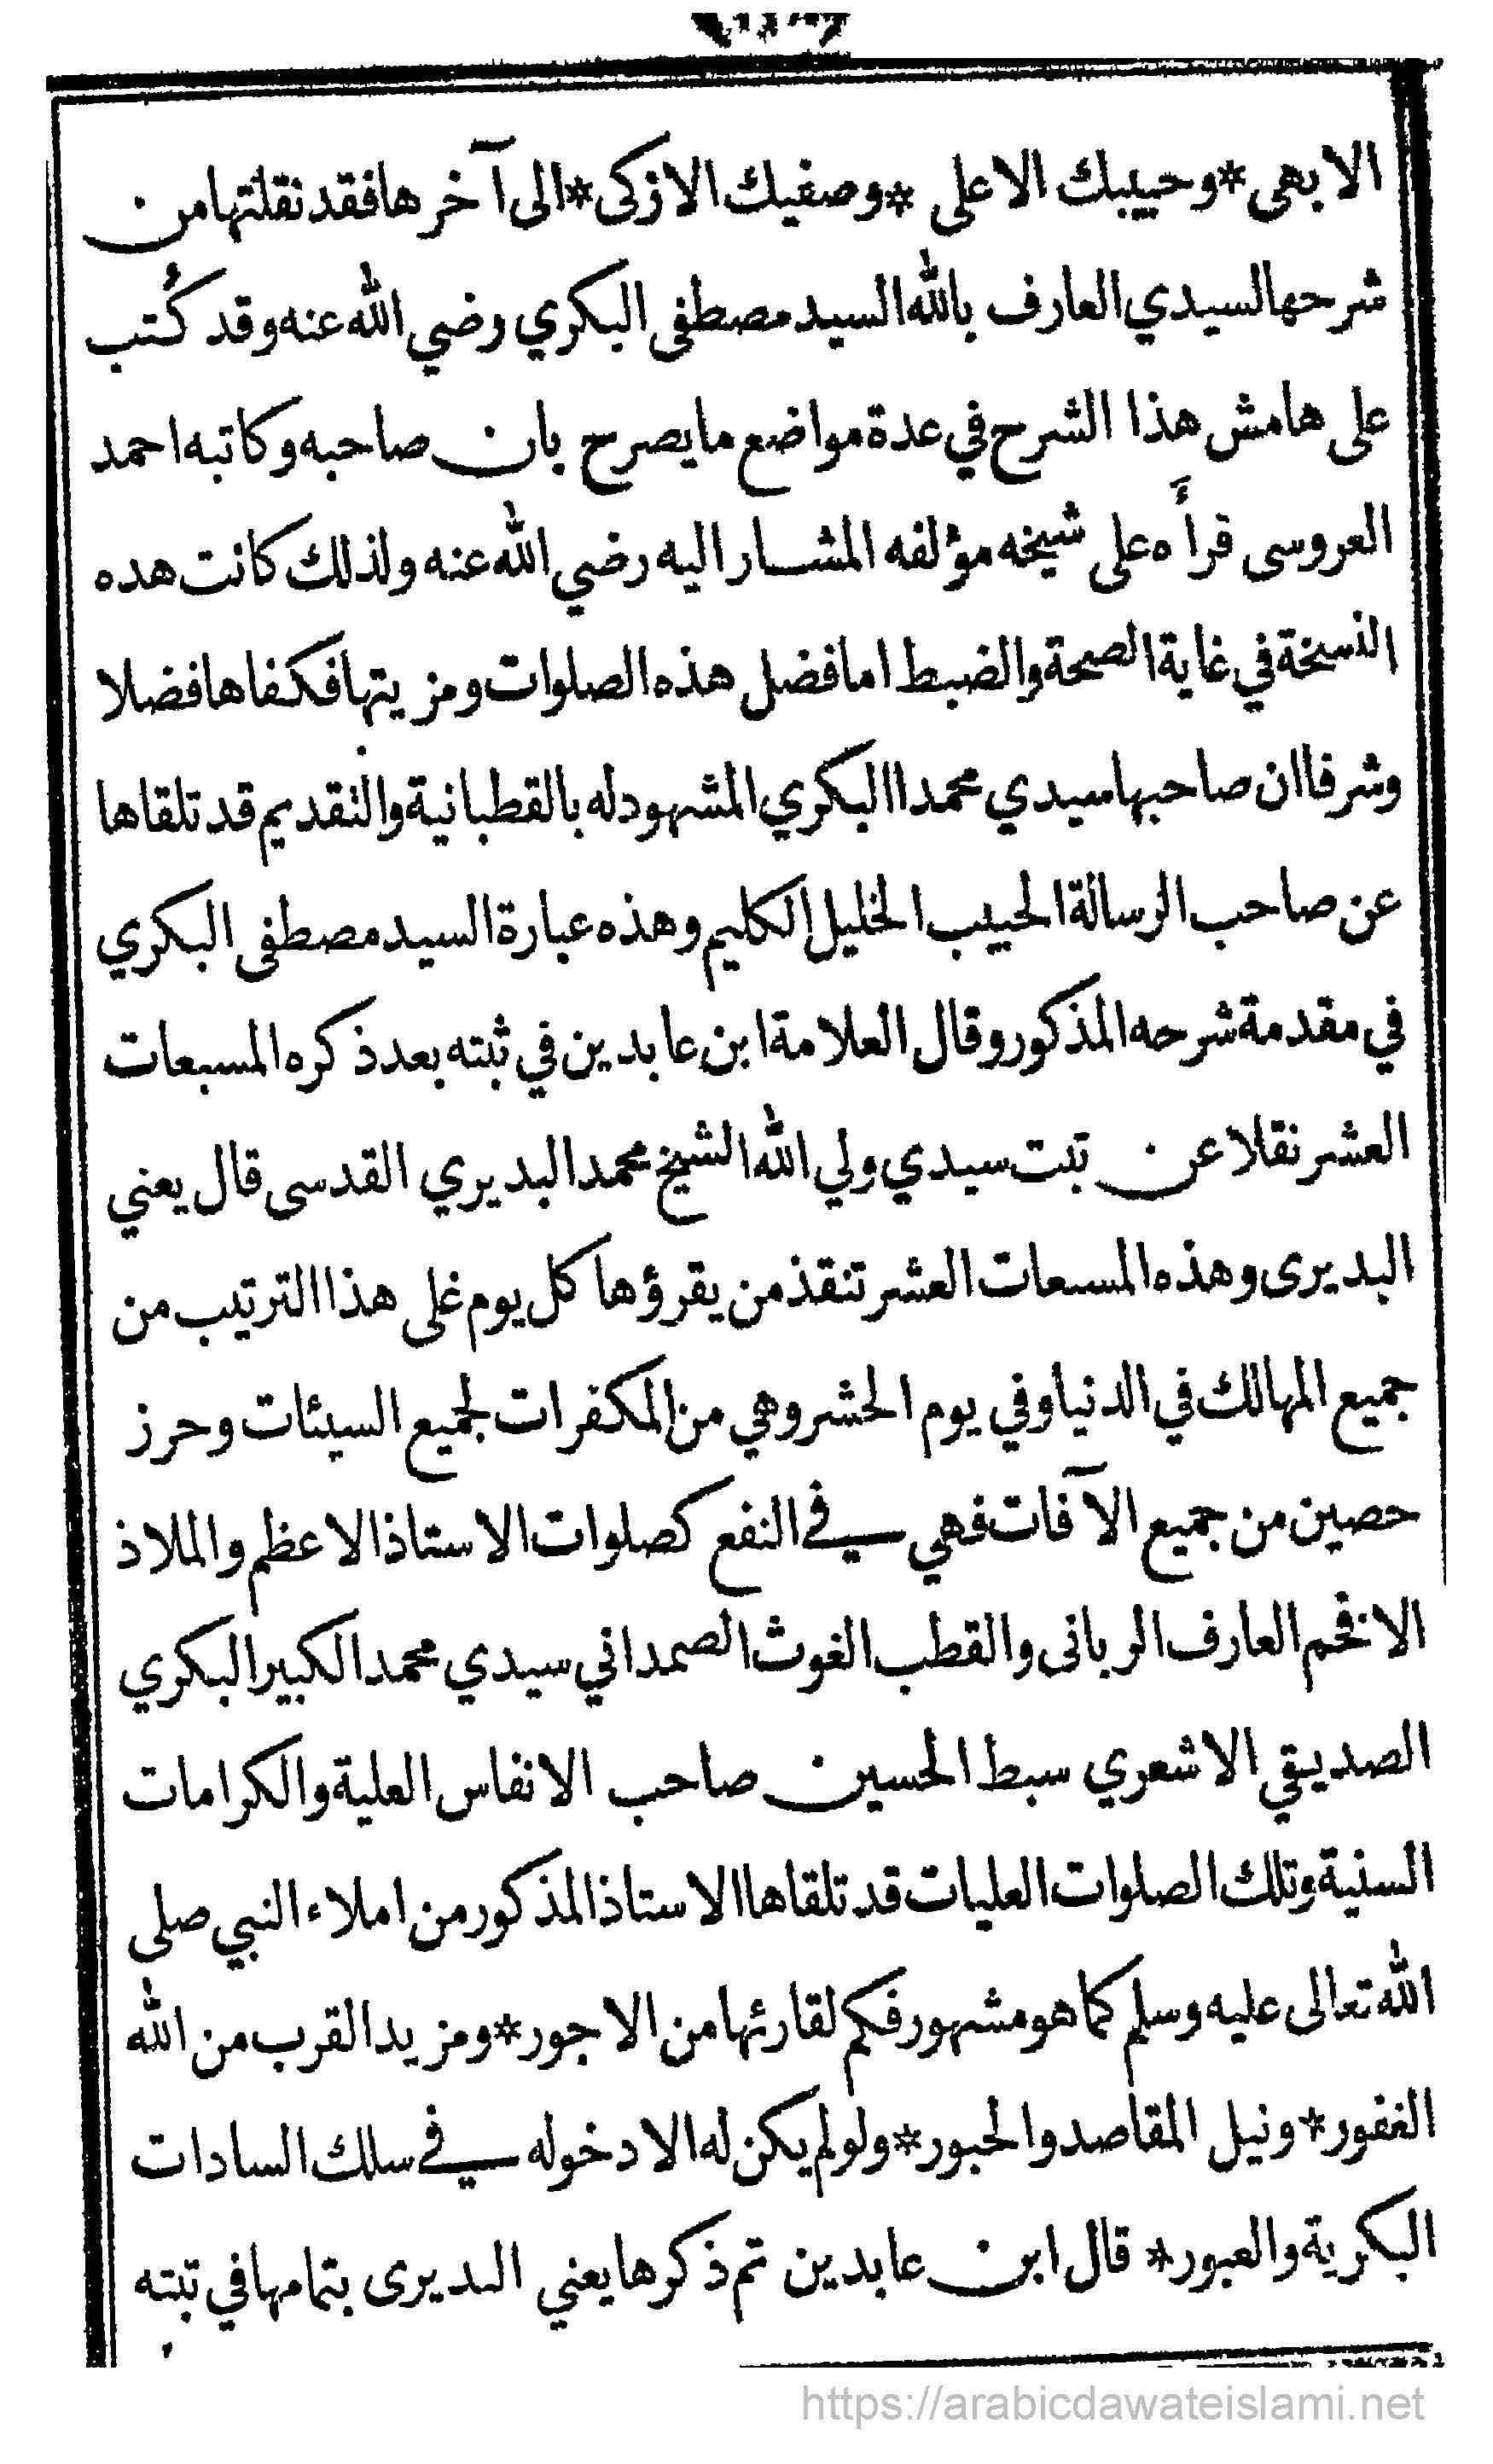 الابهى * وحبيبك الاعلى * وصفيك الازكى * الى آخرها فقد نقلتها من
شرحها لسيدي العارف بالله السيد مصطفى البكري رضي الله عنه وقد كُتب
على هامش هذا الشرح في عدة مواضع ما يصرح بان صاحبه وكاتبه احمد
العروسى قرأَه على شيخه مؤلفه المشار اليه رضي الله عنه ولذلك كانت هده
النسخة في غاية الصحة والضبط اما فضل هذه الصلوات ومزيتها فكفاها فضلا
وشرفا ان صاحبها سيدي محمدا البكري المشهود له بالقطبانية والتقديم قد تلقاها
عن صاحب الرسالة الحبيب الخليل الكليم وهذه عبارة السيد مصطفى البكري
في مقدمة شرحه المذكور وقال العلامة ابن عابدين في ثبته بعد ذكره المسبعات
العشر نقلا عن تبت سيدي ولي الله الشيخ محمد البديري القدسى قال يعني
البديرى وهذه المسبعات العشر تنقذ من يقرؤها كل يوم غلى هذا الترتيب من
جميع المهالك في الدنيا وفي يوم الحشر وهي من المكفرات لجميع السيئات وحرز
حصين من جميع الآفات فهي في النفع كصلوات الاستاذ الاعظم والملاذ
الافخم العارف الربانى والقطب الغوث الصمداني سيدي محمد الكبير البكري
الصديقي الاشعري سبط الحسين صاحب الانفاس العلية والكرامات
السنية وتلك الصلوات العليات قد تلقاها الاستاذ المذكور من املاء النبي صلى
الله تعالى عليه وسلم كما هو مشهور فكم لقارئها من الاجور * ومزيد القرب من الله
الغفور * ونيل المقاصد والحبور * ولو لم يكن له الا دخوله في سلك السادات
البكرية والعبور * قال ابن عابدين تم ذكرها يعني البديرى بتمامها في تبته
https://arabicdawateislami.net